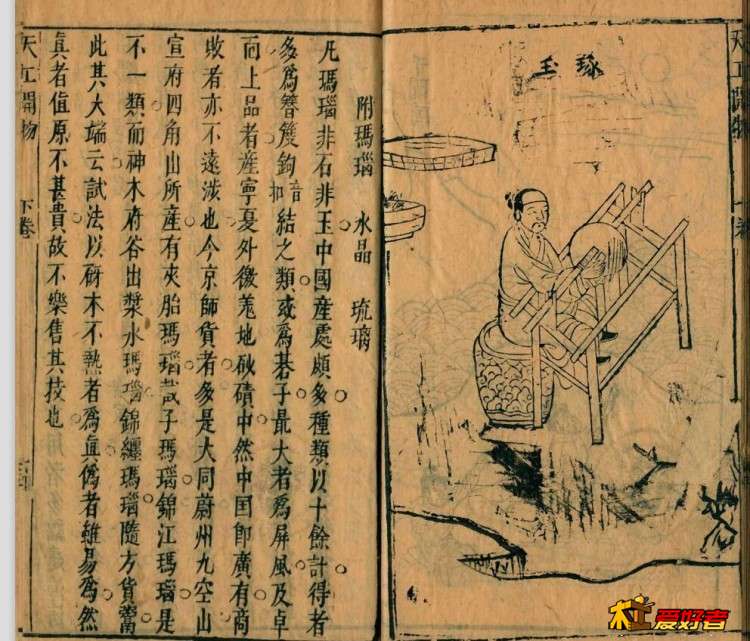 天工開物 下卷
琢玉
附瑪瑙 水晶 琉璃
凡瑪瑙非石非玉中國產處頗多種類以十餘計得者
多爲簪釦音扣結之類或爲碁子最大者爲屏風及卓
面上品者產寧夏外徼羌地砂磧中然中国即廣有商
販者亦不遠涉也今京師貨者多是大同蔚州九空山
宣府四角山所產有夾胎瑪瑙截子瑪瑙錦江瑪瑙是
不一類而神木府谷出漿水瑪瑙錦纏瑪瑙隨方貨鬻
此其大端云試法以砑木不熱者爲眞僞者雖易爲然
眞者值原不甚貴故不樂售其技也
天工開物 下卷
爱好者